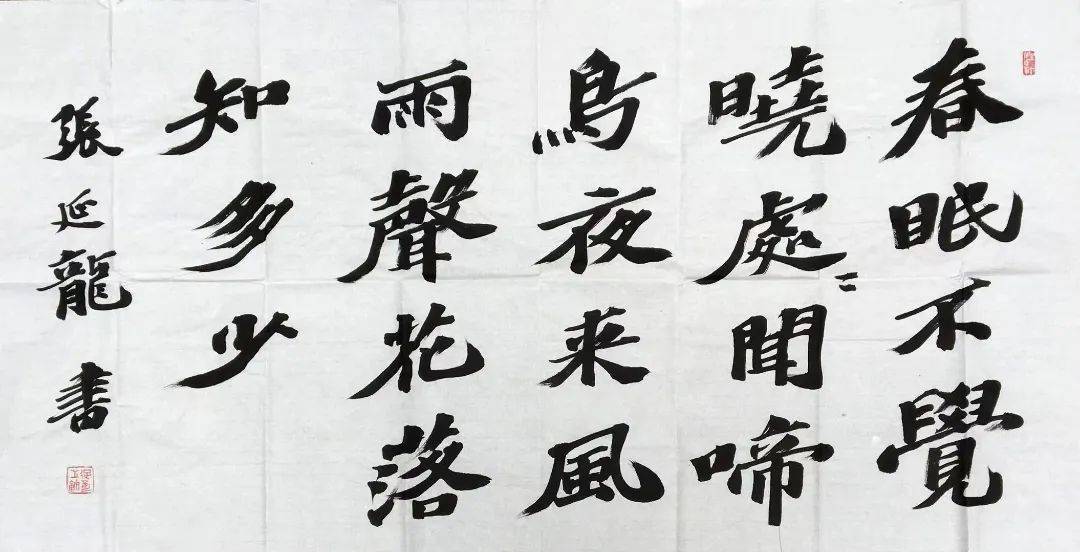 春眠不覺
曉處〻聞啼
鳥夜来風
雨聲花落
知多少
張延龍書